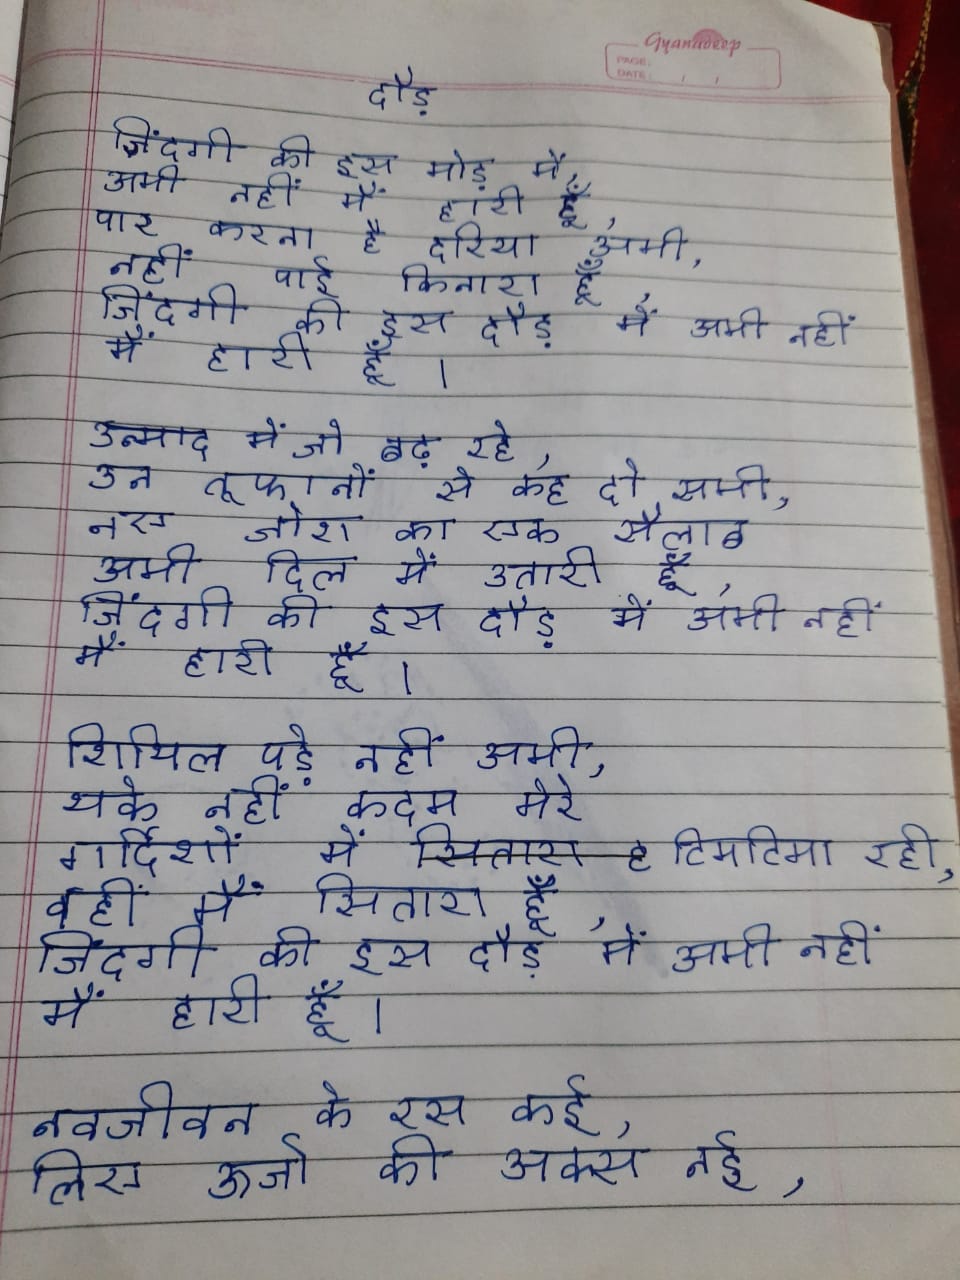 Gyanadeep
PAGE:
DATE: / /
दौड़
ज़िंदगी की इस मोड़ में,
अभी नहीं मैं हारी हूँ,
पार करना है दरिया अभी,
नहीं पाई किनारा हूँ,
ज़िंदगी की इस दौड़ में अभी नहीं
मैं हारी हूँ।
उन्माद में जो बढ़ रहे,
उन तूफानों से कह दो सभी,
नए जोश का एक सैलाब
अभी दिल में उतारी हूँ,
जिंदगी की इस दौड़ में अभी नहीं
मैं हारी हूँ।
शिथिल पड़े नहीं अभी,
थके नहीं कदम मेरे
गर्दिशों में सितारा ह टिमटिमा रही,
वहीं मैं सितारा हूँ,
जिंदगी की इस दौड़ में अभी नहीं
मैं हारी हूँ।
नवजीवन के रस कई,
लिए ऊर्जा की अक्स नई,